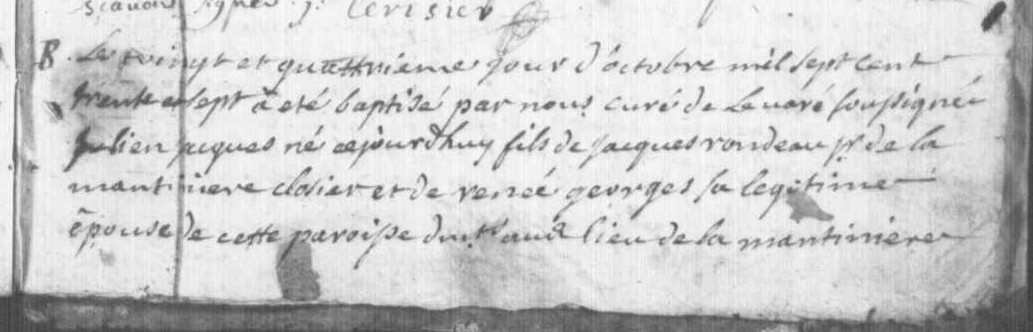 signer j. Cerisier
B Le vingt et quattrieme jour d'octobre mil sept cent
trente et sept à eté baptisé par nous curé de Levaré soussigné
Julien jacques né cejourdhuy fils de jacques rondeau de la
mantiniere closier et de reneé georges sa legitime
épouse de cette paroisse aud lieu de la mantiniere